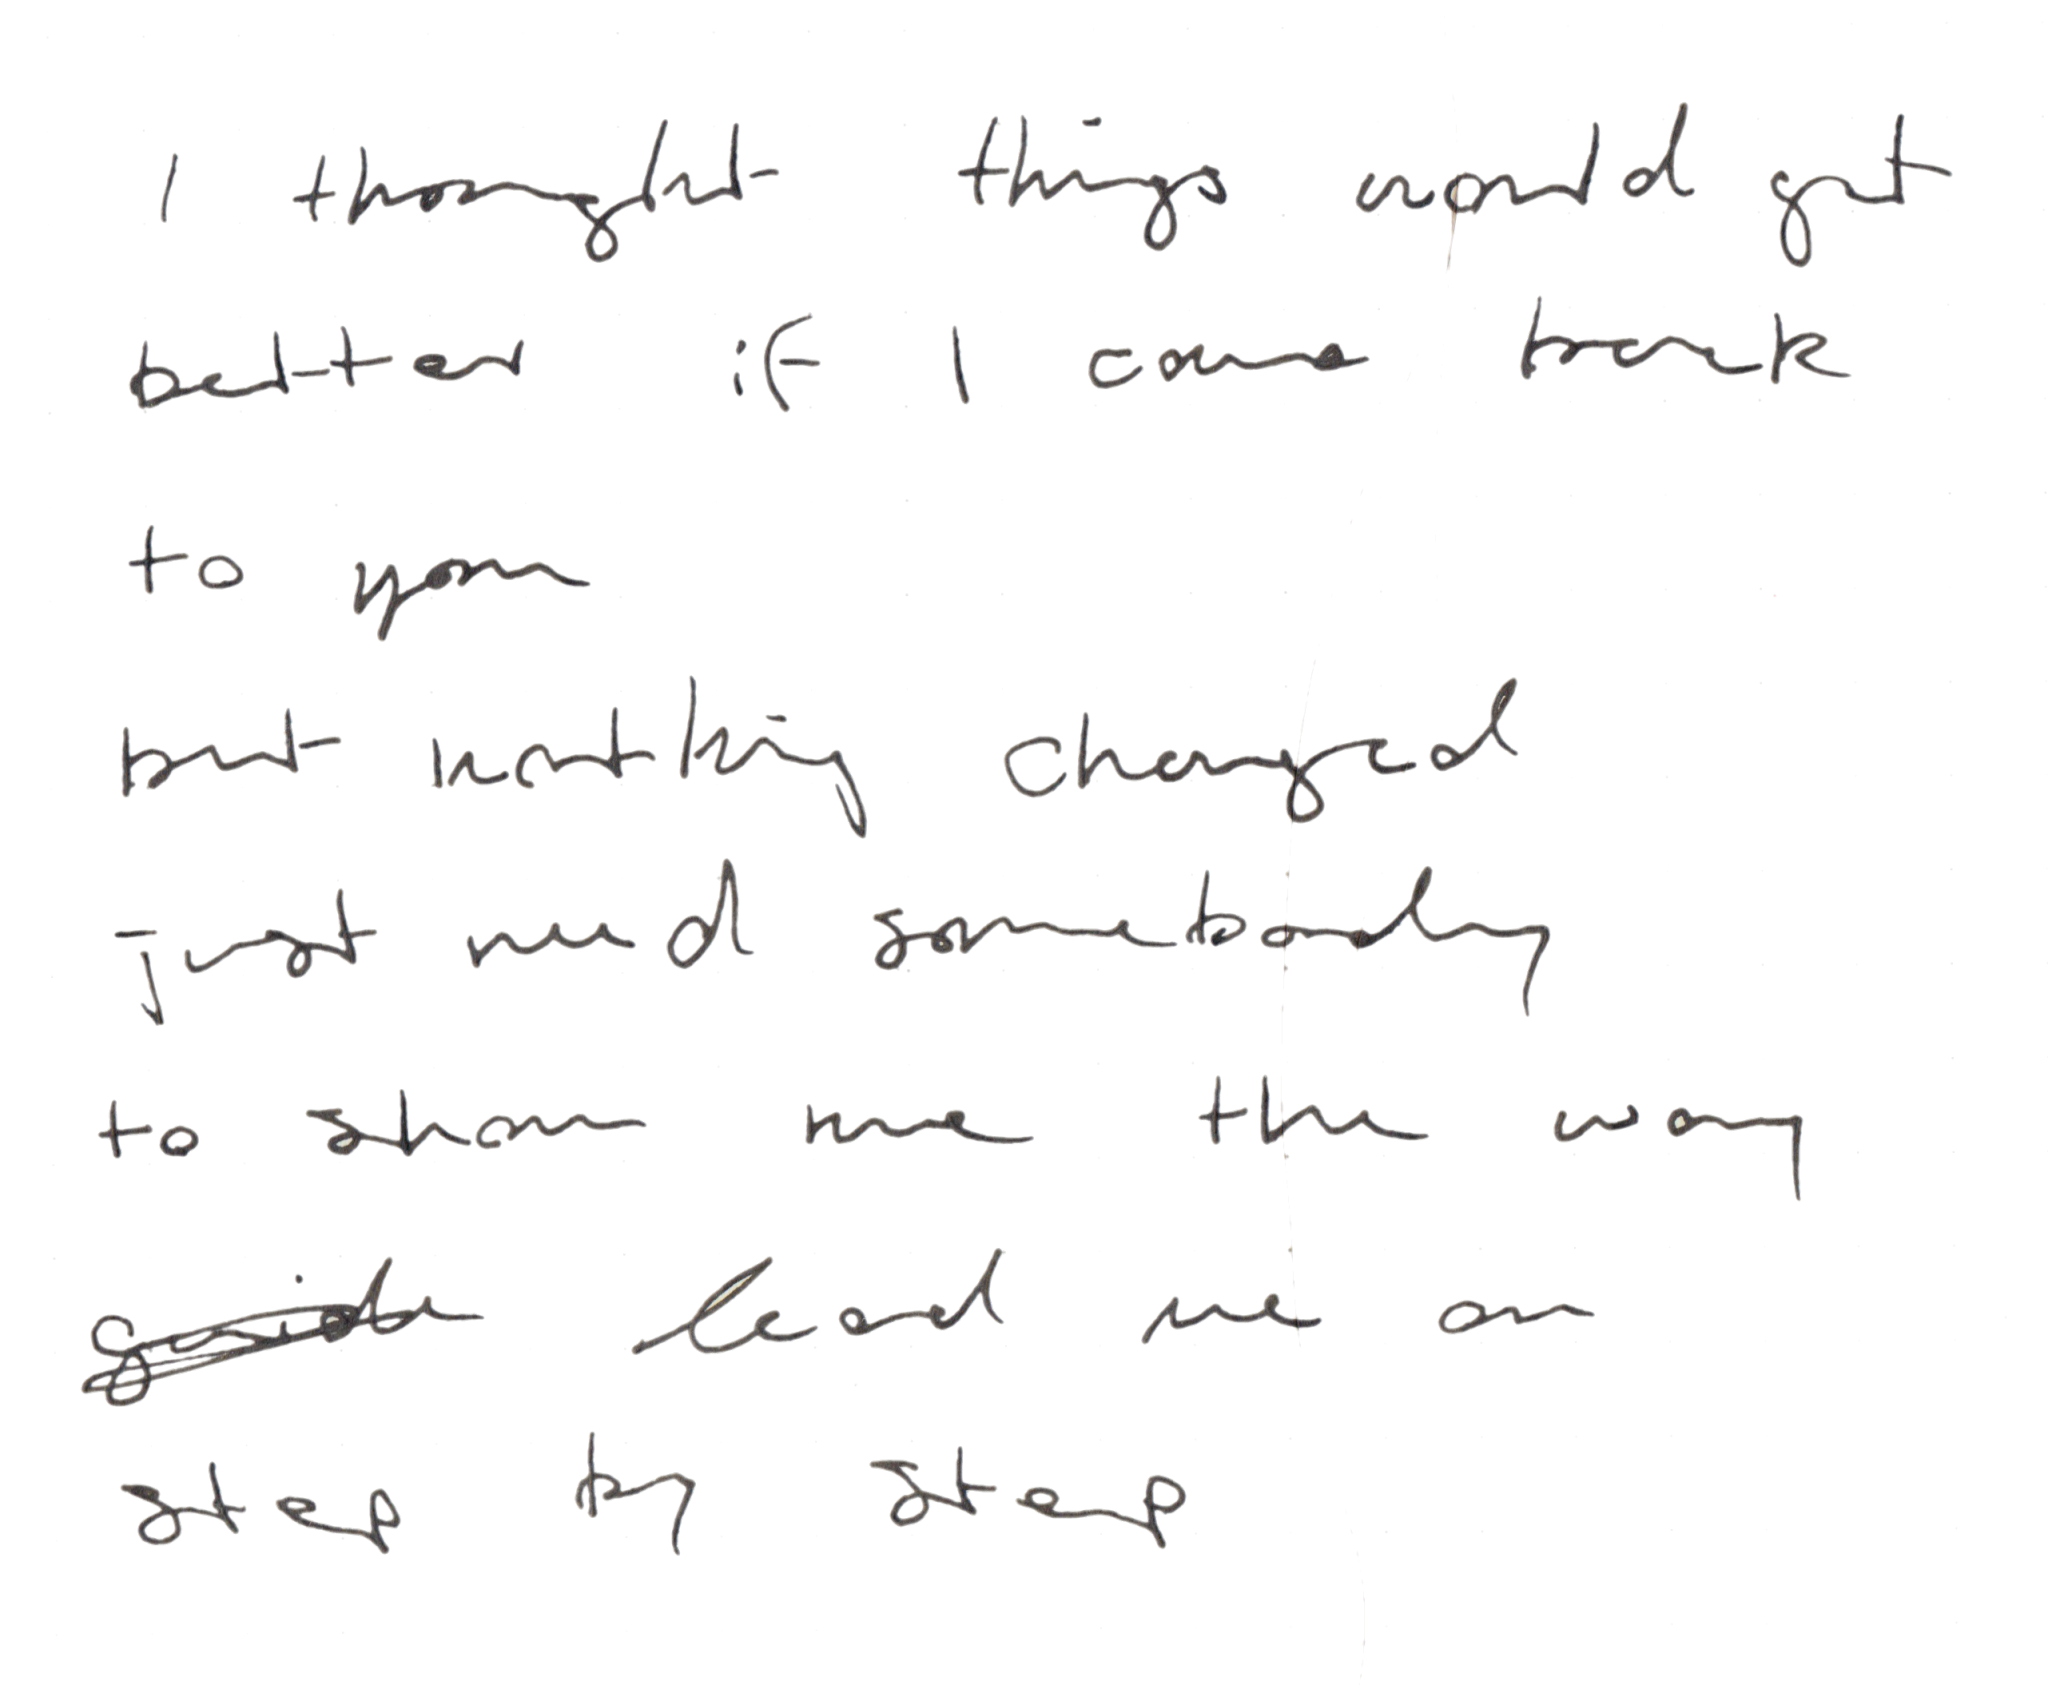 I thought things would get
better if I came back
to you
but nothing changed
just need somebody
to show me the way
guide lead me on
step by step